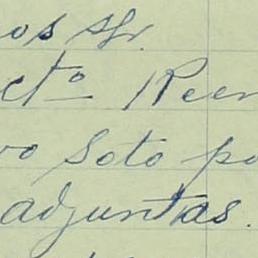 os Sr.
cto Reen
vo Soto po
adjuntas.